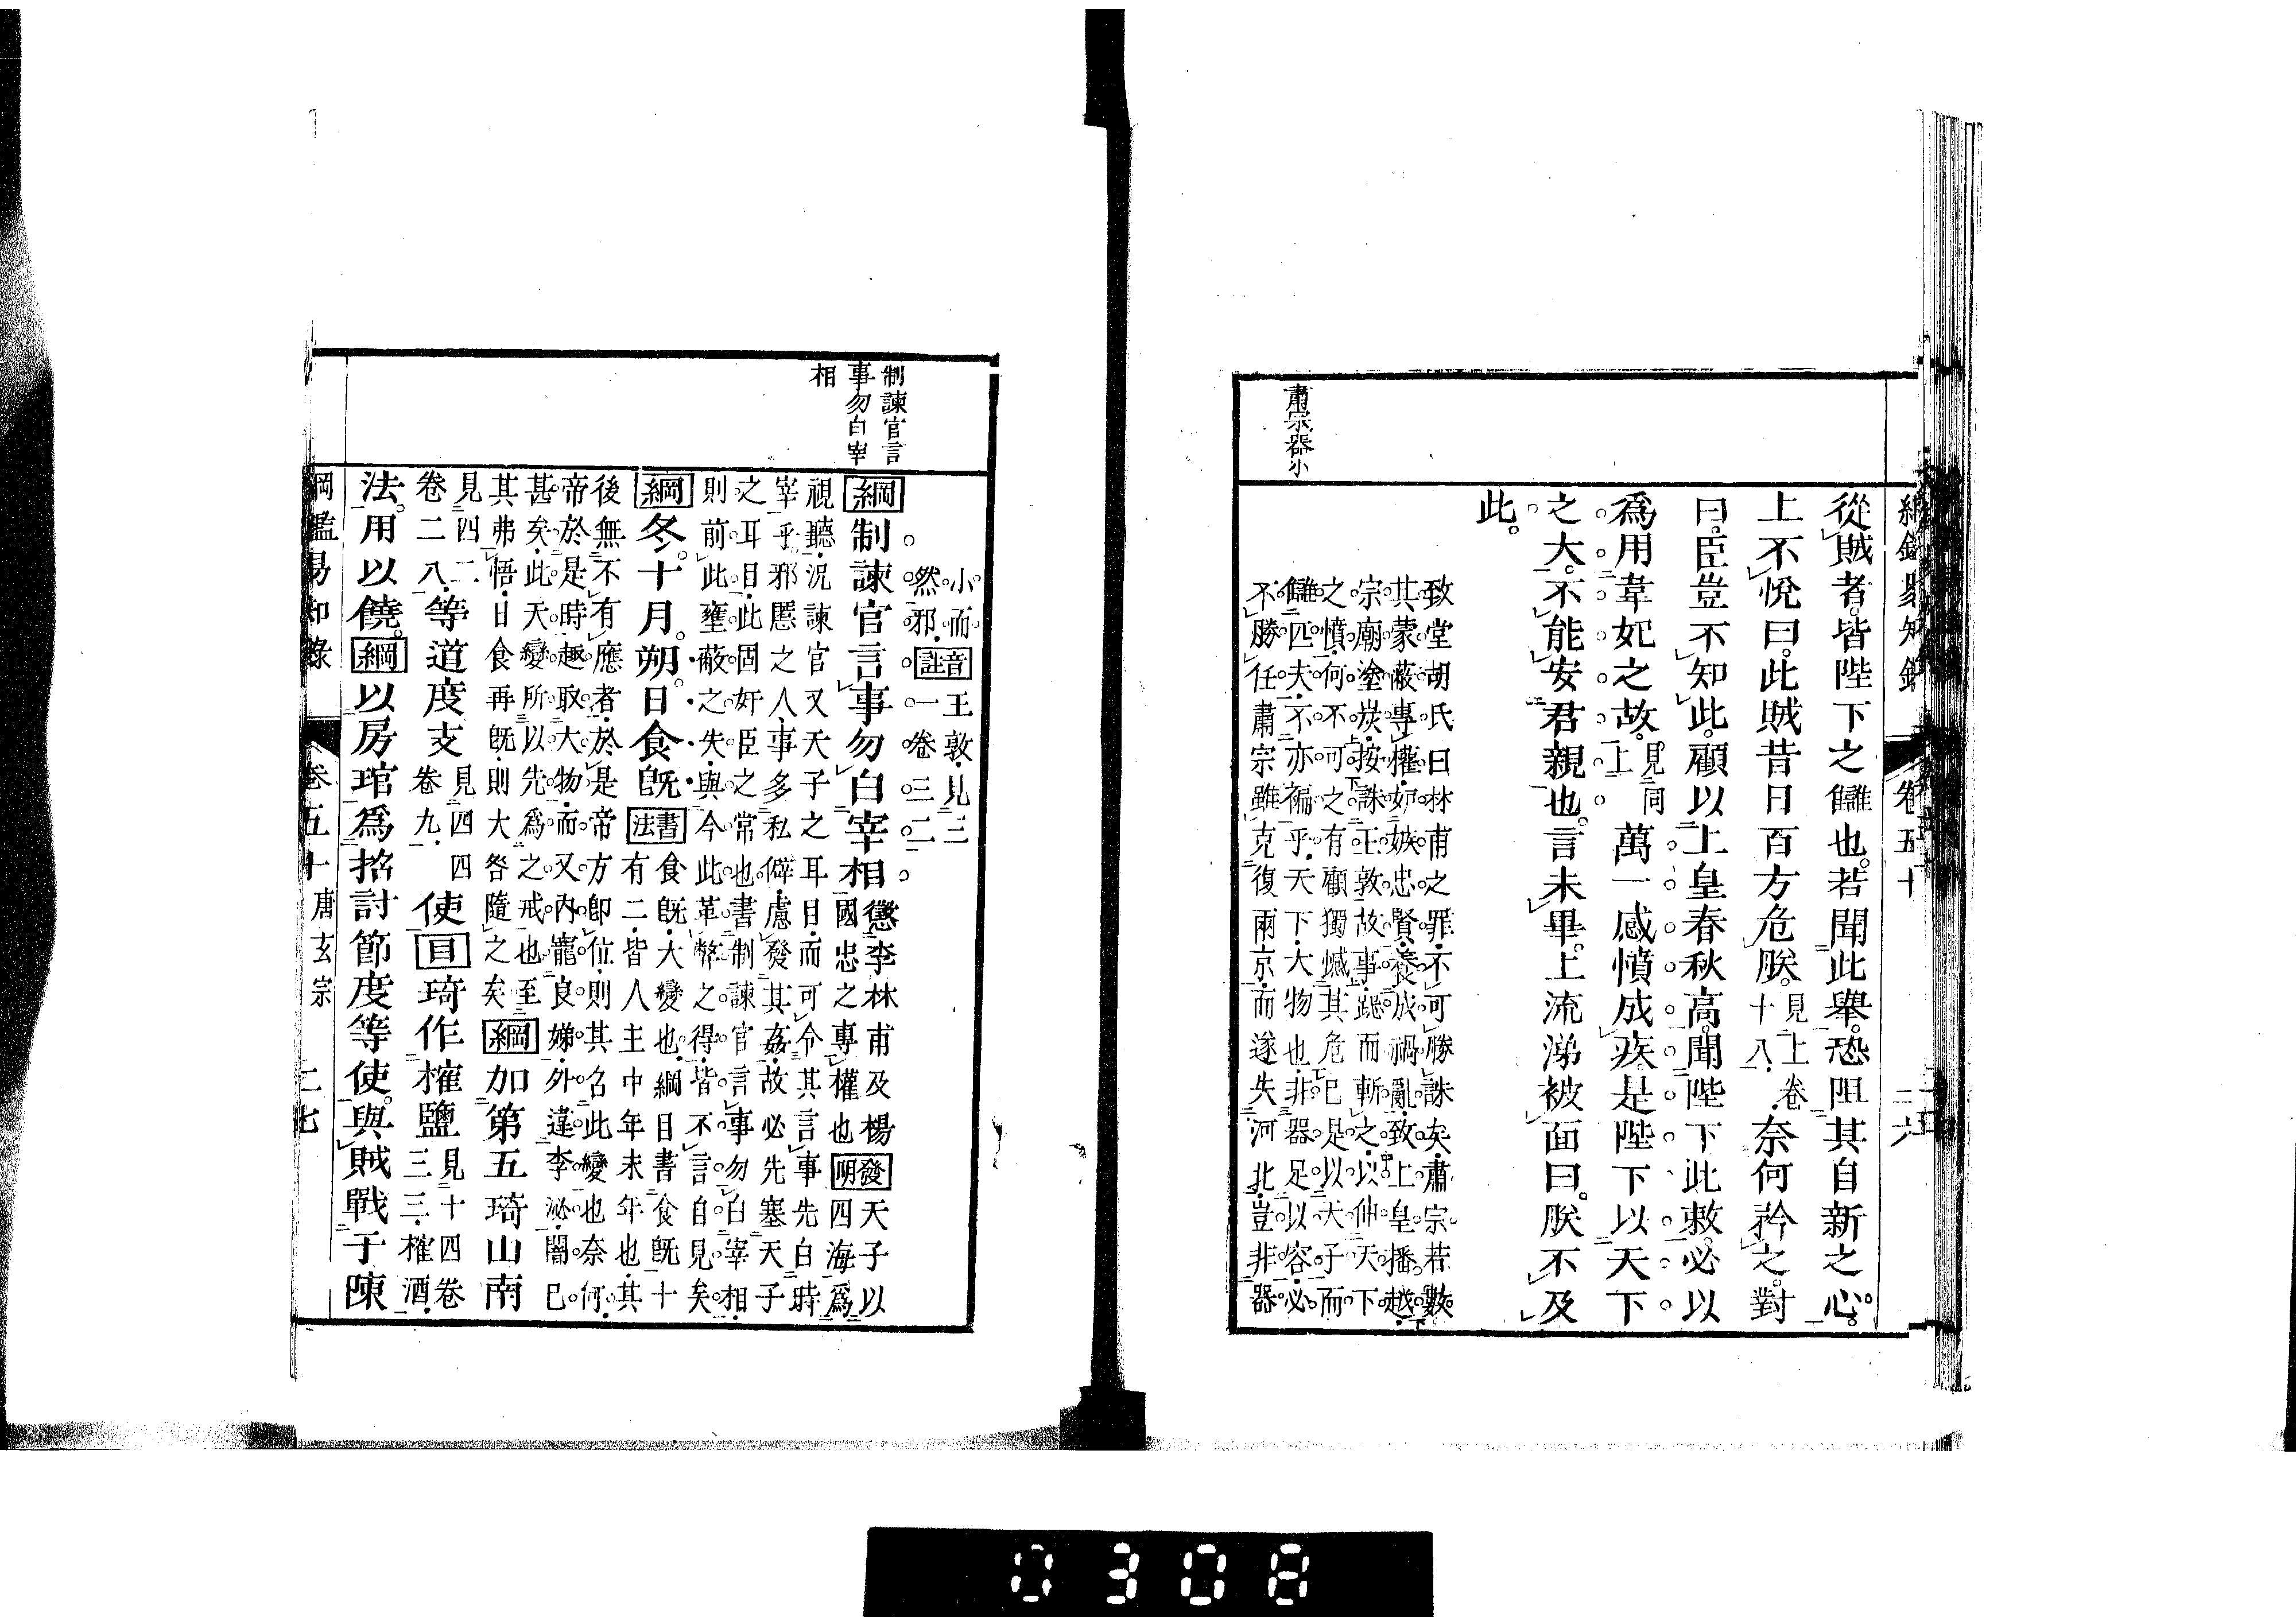 綱鑑易知錄 卷五十 二六
肅宗器小
從賊者。皆陛下之讎也。若聞此舉。恐阻其自新之心。
上不悅曰。此賊昔日百方危朕。見上卷十八。奈何矜之。對
曰。臣豈不知此。顧以上皇春秋高。聞陛下此敕。必以
爲用韋妃之故。見同上 萬一感憤成疾。是陛下以天下
之大。不能安君親也。言未畢。上流涕被面曰。朕不及
此。
致堂胡氏曰林甫之罪不可勝誅矣肅宗若數
其蒙蔽專權妒嫉忠賢養成禍亂致上皇播越
宗廟塗炭按誅王敦故事跽而斬之以伸天下
之憤何不可之有顧獨憾其危已是以天子而
讎匹夫不亦褊乎天下大物也非器足以容必
不勝任肅宗雖克復兩京而遂失河北豈非器
小而
然邪
音註 王敦見三一卷三二
制諫官言事勿白宰相
綱 制諫官言事勿白宰相 懲李林甫及楊國忠之專權也 發明 天子以四海爲
視聽況諫官又天子之耳目而可令其言事先白時
宰乎邪慝之人事多私僻慮發其姦故必先塞天子
之耳目此固奸臣之常也書制諫官言事勿白宰相
則前此壅蔽之失與今此革弊之得皆不言自見矣
綱 冬。十月。朔。日食旣 書法 食旣大變也綱目書食旣十有二皆人主中年末年也其
後無不有應者於是帝方卽位則其召此變也奈何
帝於是時趣取大物而又內寵良娣外違李泌闇已
甚矣此天變所以先爲之戒也至
其弗悟日食再旣則大咎隨之矣 綱 加第五琦山南
見四二卷二八 等道度支 見四四卷九 使 目 琦作榷鹽 見十四卷三三榷酒
法。用以饒。 綱 以房琯爲招討節度等使。與賊戰于陳
綱鑑易知錄 卷五十 唐玄宗 二七
0308